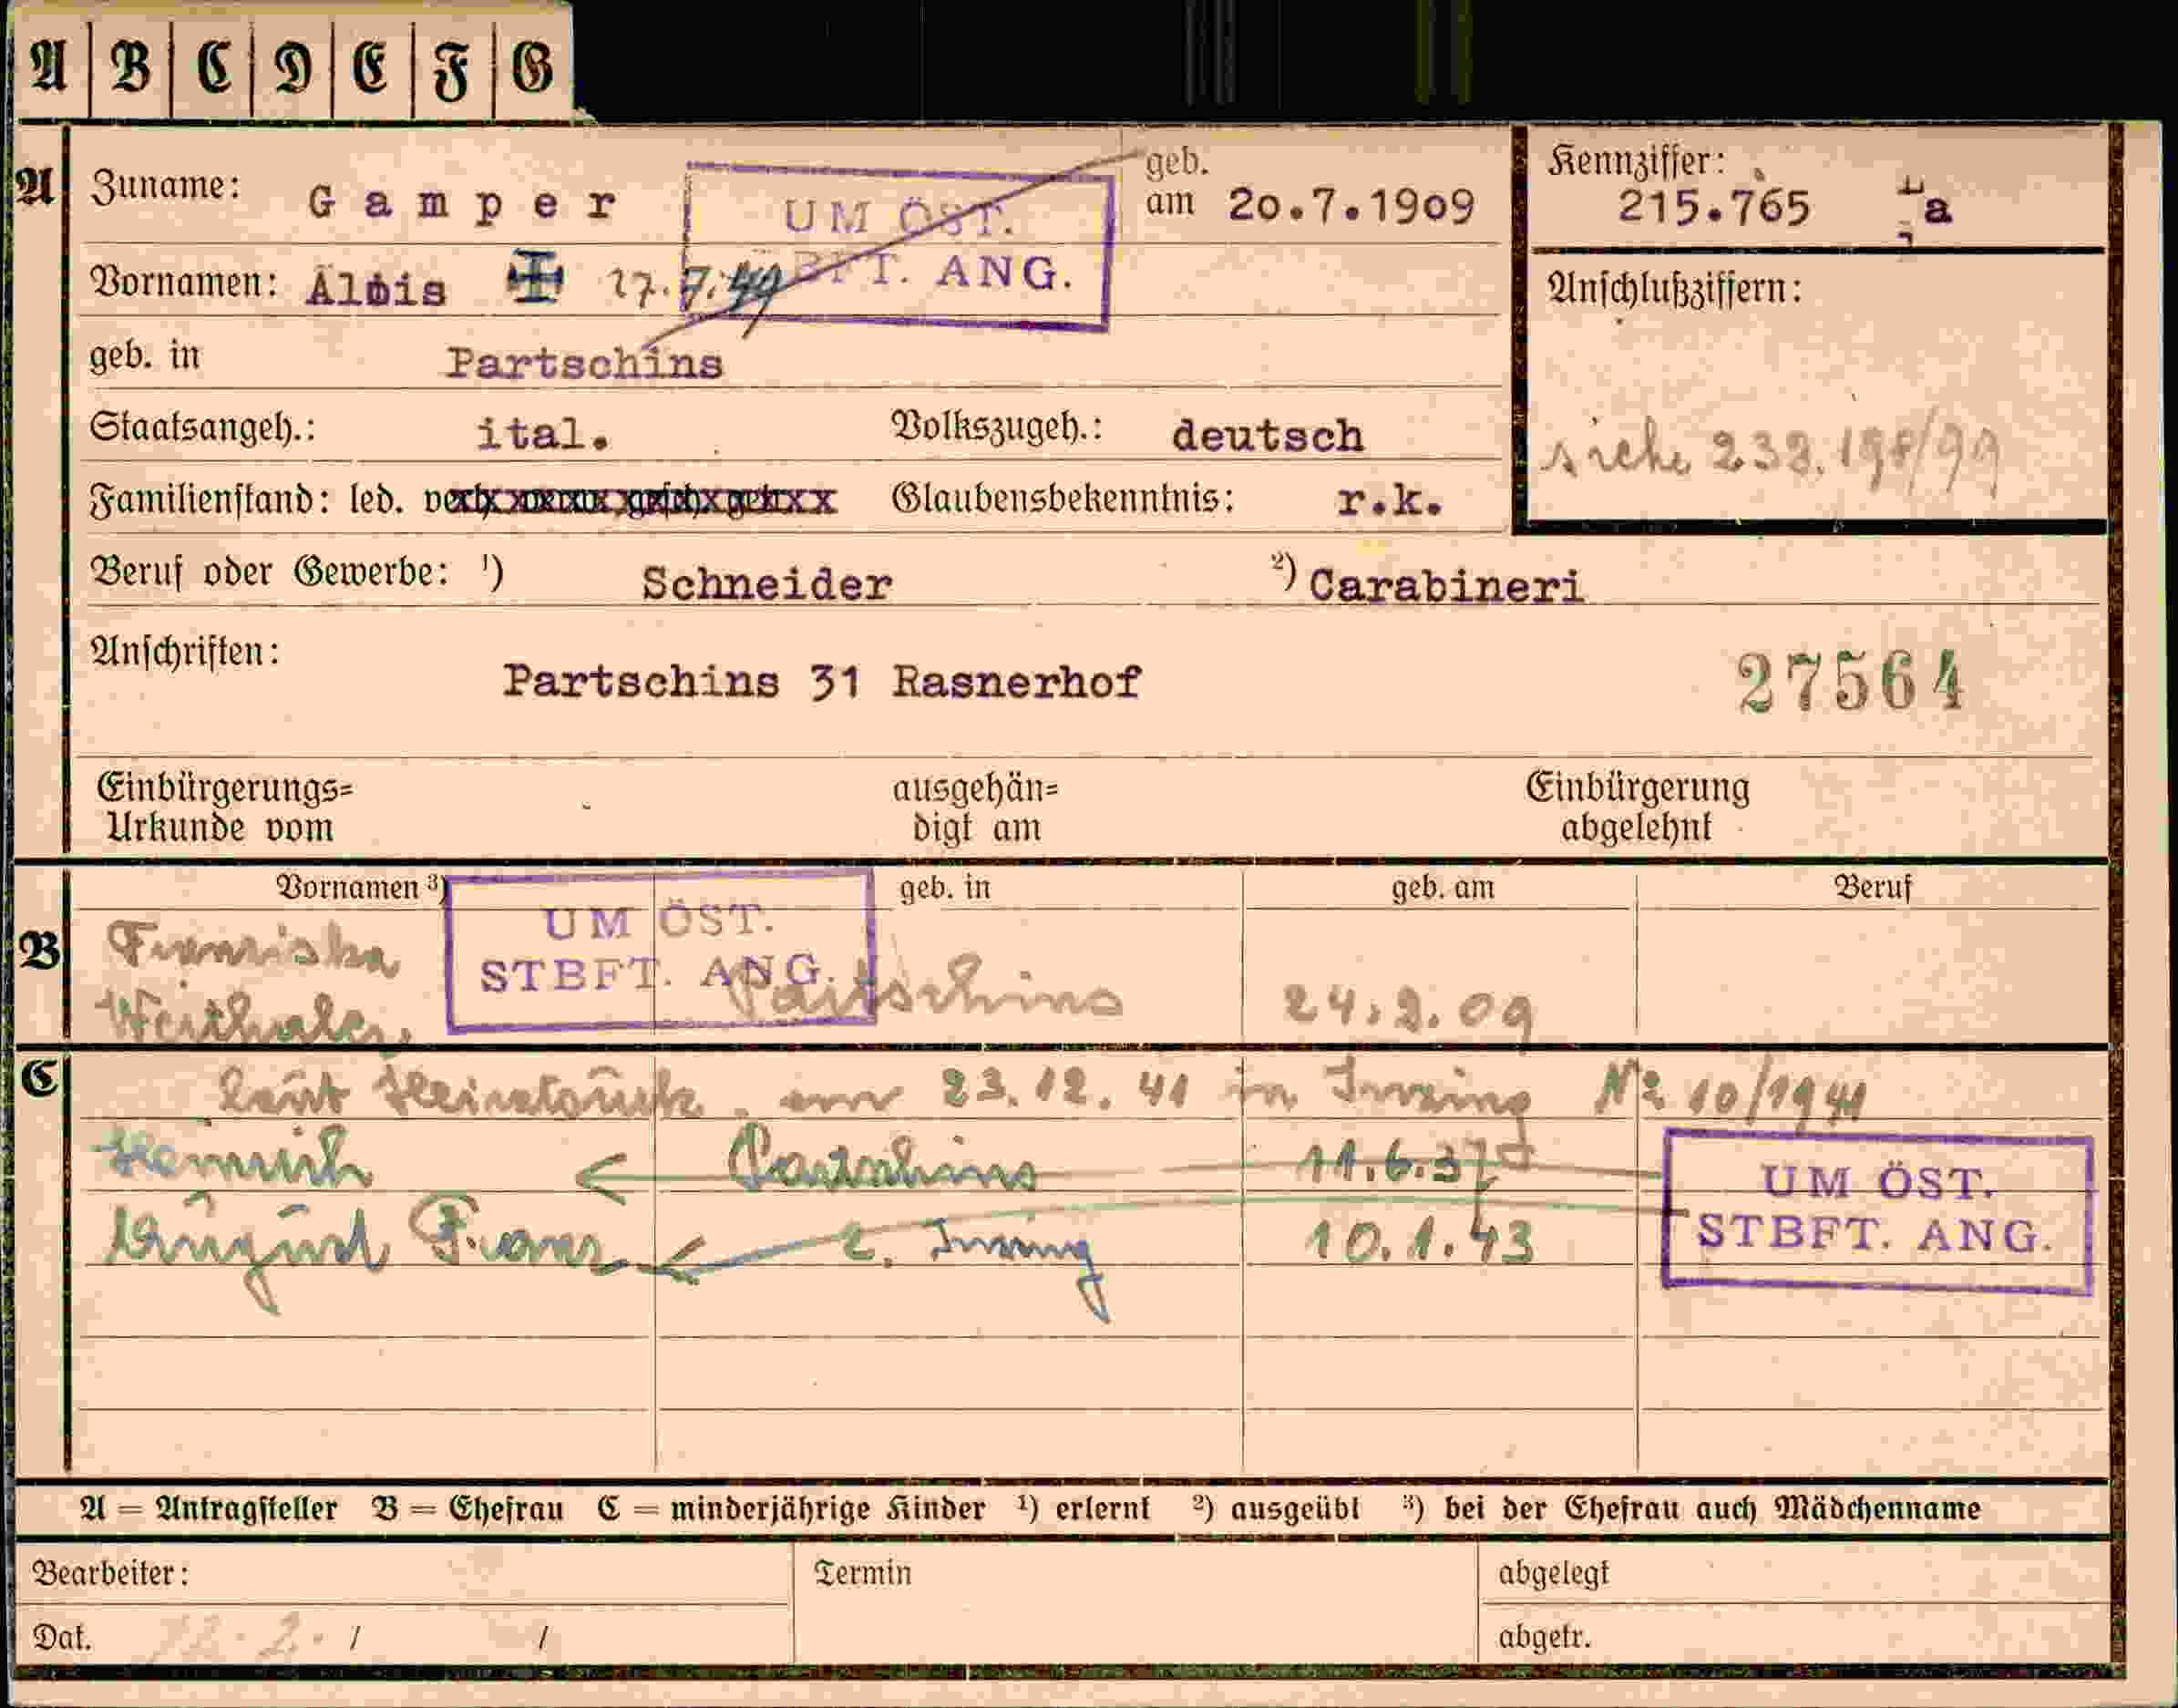 A B C D E F G
A Zuname: Gamper geb. am 20.7.1909
UM ÖST.
STBFT. ANG.
Kennziffer: 215.765 a
Vornamen: Alois 17.7.49
Anschlußziffern:
geb. in Partschins
siehe 232.198/99
Staatsangeh.: ital. Volkszugeh.: deutsch
Familienstand: led. verh. verw. gesch. getr. Glaubensbekenntnis: r.k.
Beruf oder Gewerbe: ¹) Schneider ²) Carabineri
Anschriften: Partschins 31 Rasnerhof 27564
Einbürgerungs= ausgehän= Einbürgerung
Urkunde vom digt am abgelehnt
Vornamen ³) geb. in geb. am Beruf
UM ÖST.
STBFT. ANG.
B Franziska
Weithaler Partschins 24.2.09
C laut Heiratsurk. vom 23.12.41 in Inzing Nº 10/1941
Heinrich Partschins 11.6.37
August Franz Inzing 10.1.43
UM ÖST.
STBFT. ANG.
A = Antragsteller B = Ehefrau C = minderjährige Kinder ¹) erlernt ²) ausgeübt ³) bei der Ehefrau auch Mädchenname
Bearbeiter: Termin abgelegt
Dat. 12.2. / / abgetr.